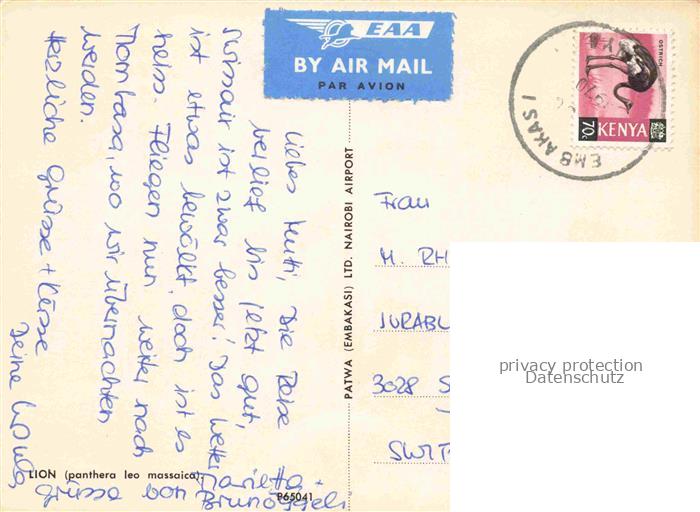 EAA
BY AIR MAIL
PAR AVION
OSTRICH
70c
KENYA
EMBAKASI
Liebes Mutti, Die Reise
verlief bis jetzt gut,
Swissair ist zwar besser! Das Wetter
ist etwas bewölkt, doch ist es
heiss. Fliegen nun weiter nach
Mombasa, wo wir übernachten
werden.
Herzliche Grüsse + Küsse
Deine
PATWA (EMBAKASI) LTD. NAIROBI AIRPORT
Frau
M. RH
JURABL
3028 S
SWIT
privacy protection
Datenschutz
LION (panthera leo massaica).
P65041
Grüsse von
Marietta +